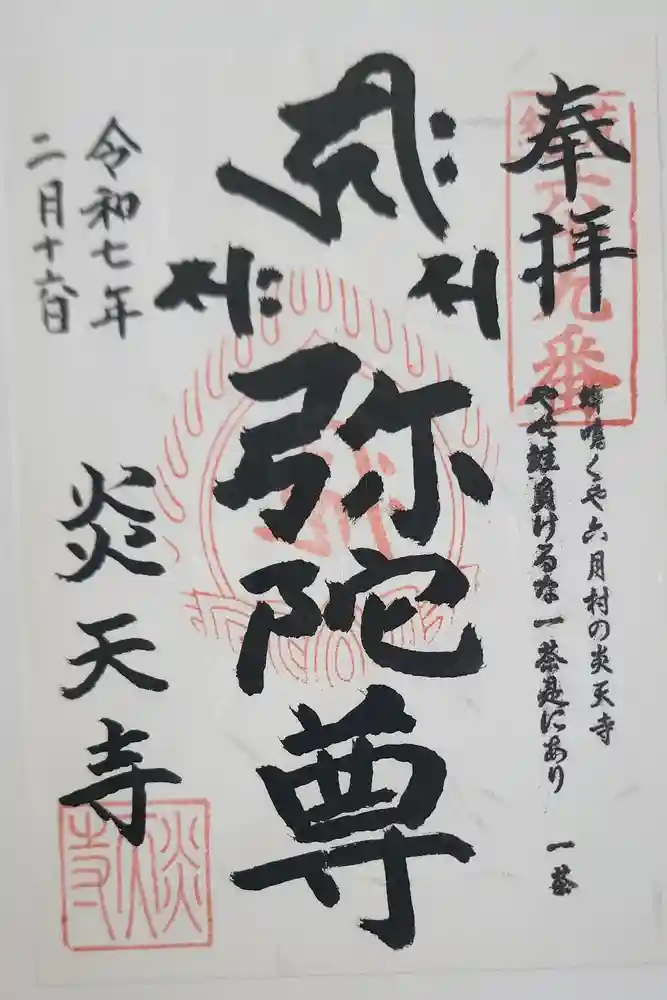 奉拝
荒綾
六十九番
蝉鳴くや六月村の炎天寺
やせ蛙負けるな一茶是にあり
一茶
弥陀尊
令和七年
二月十六日
炎天寺
炎天寺